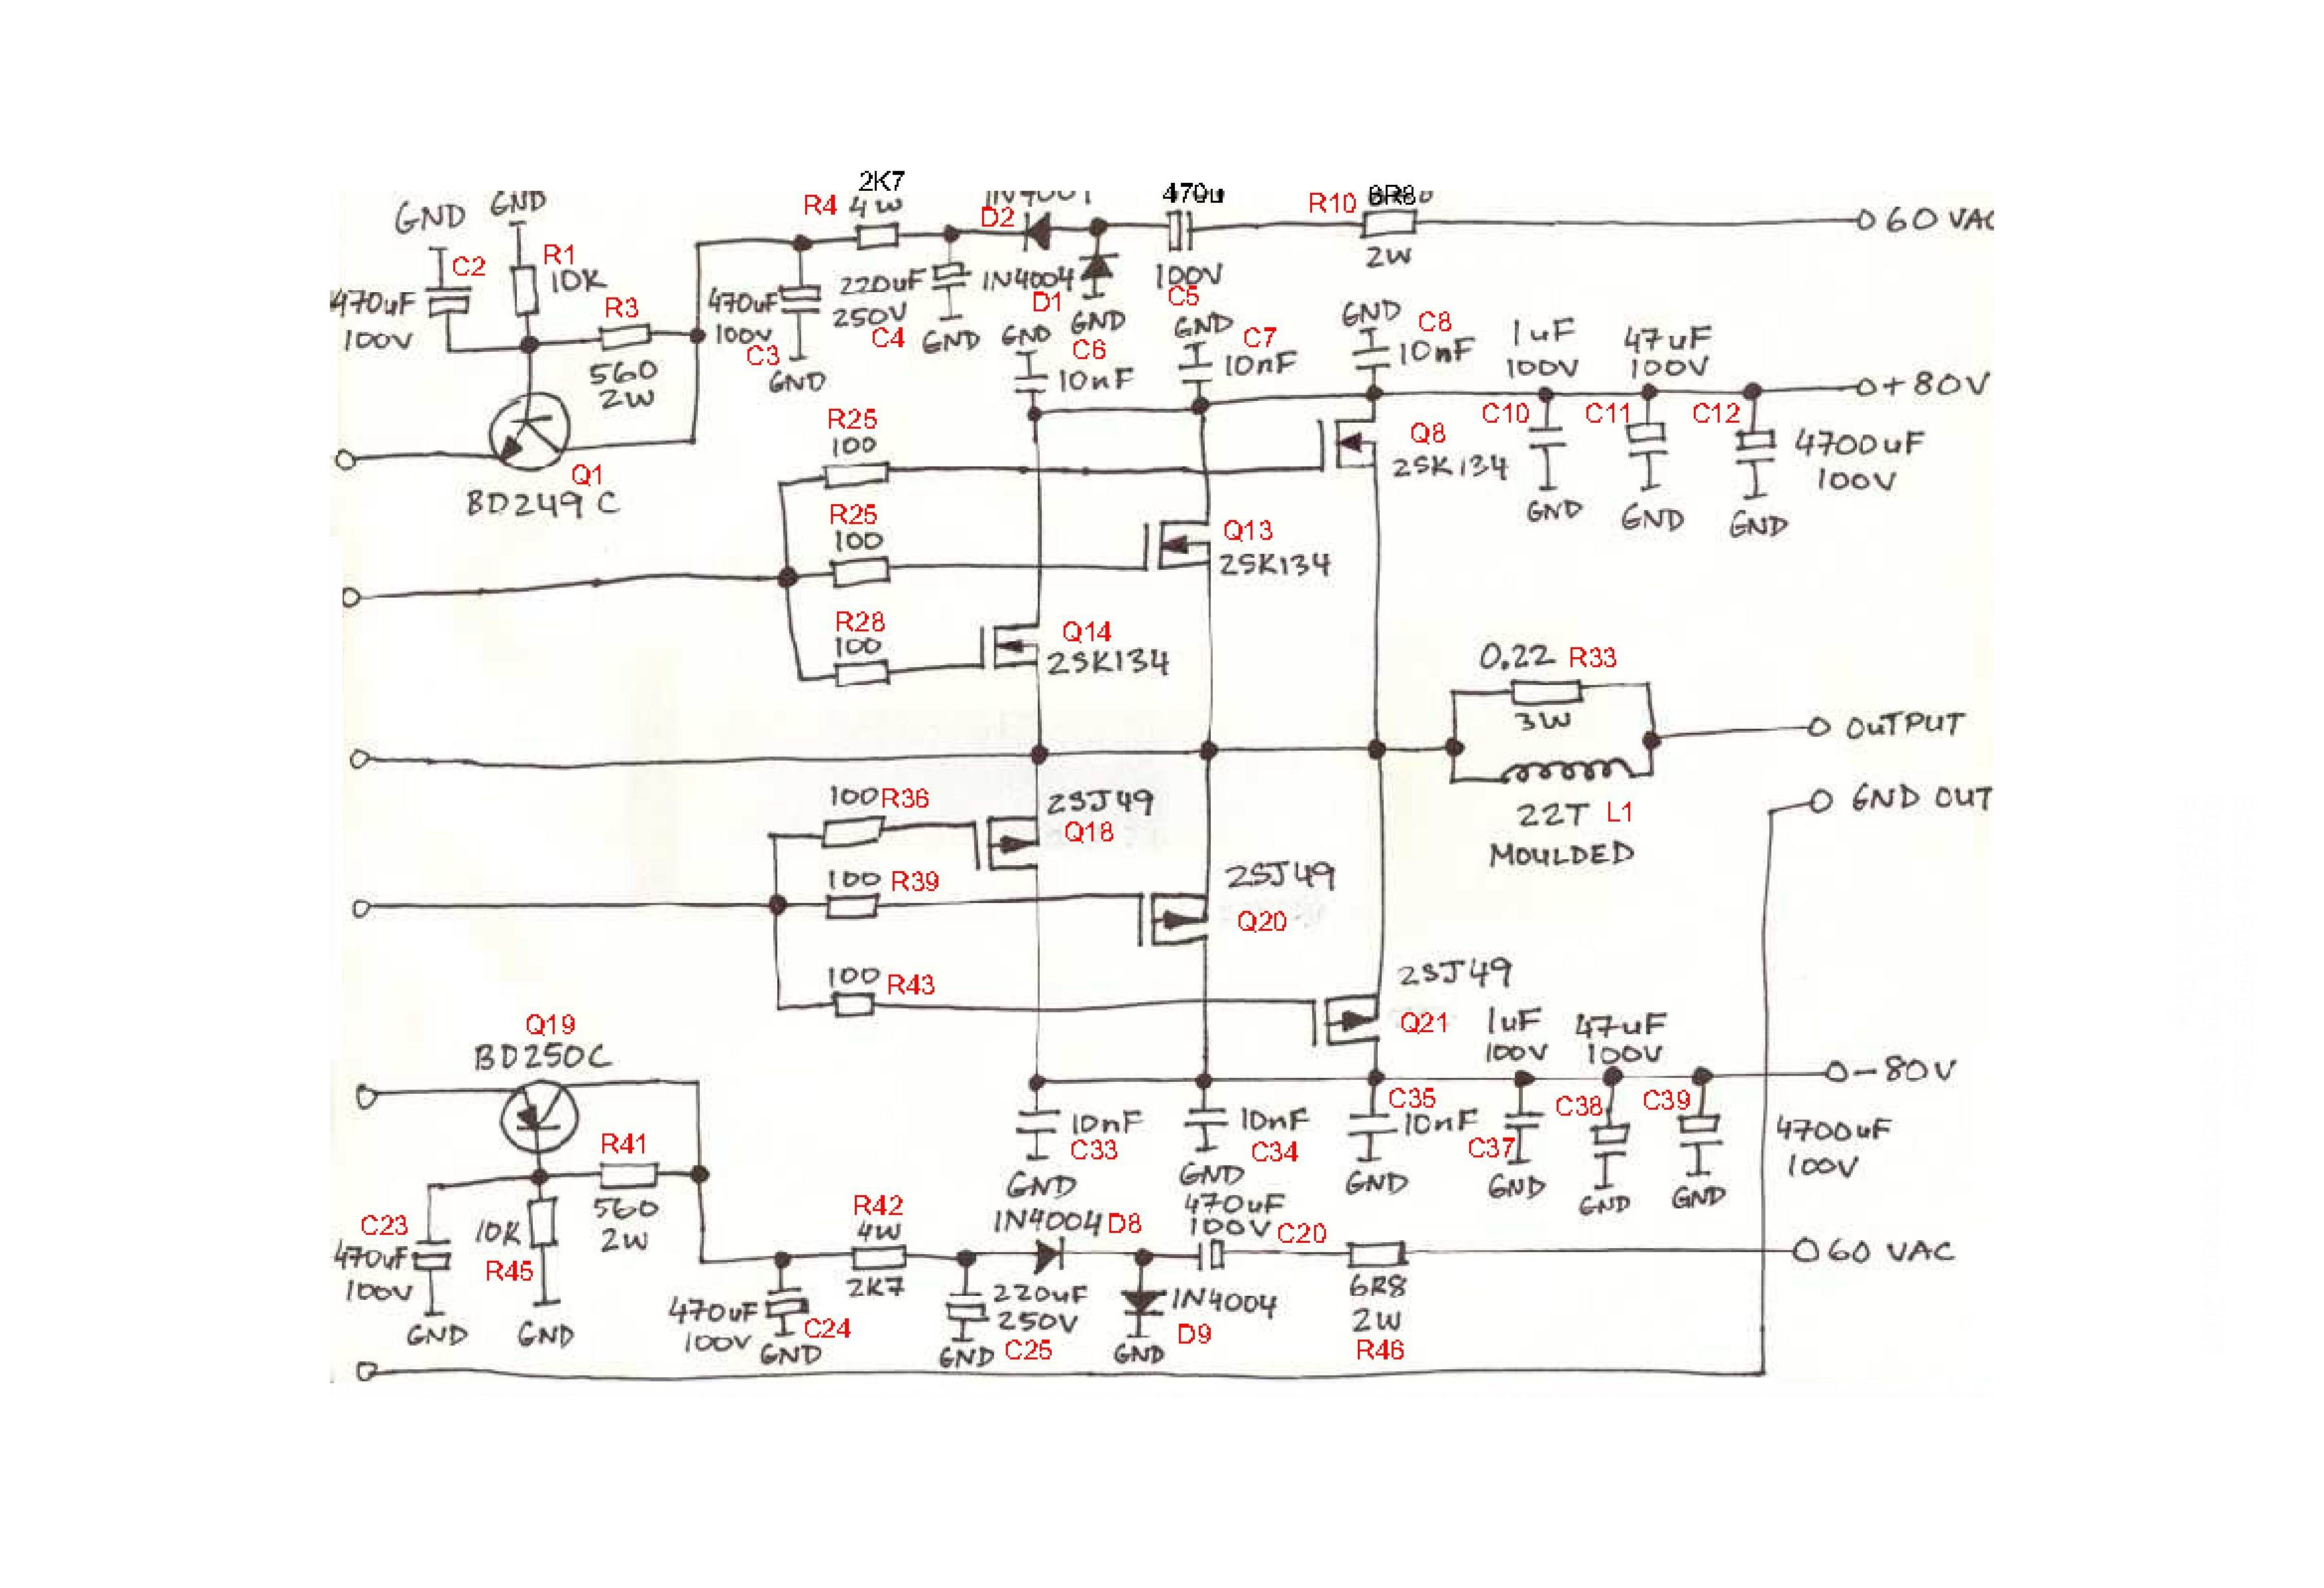 GND GND
C2
470uF
100V
R1
10K
R3
560
2W
Q1
BD249C
2K7
R4 4W
470uF
100V
C3
GND
220uF
250V
C4
GND
D2
1N4004
D1
GND
470u
100V
C5
R10 6R8
2W
60 VAC
GND
C6
10nF
GND
C7
10nF
GND
C8
10nF
1uF
100V
C10
GND
47uF
100V
C11
GND
C12
4700uF
100V
GND
+80V
R25
100
R25
100
R28
100
Q8
2SK134
Q13
2SK134
Q14
2SK134
0.22 R33
3W
22T L1
MOULDED
OUTPUT
GND OUT
100 R36
100 R39
100 R43
2SJ49
Q18
2SJ49
Q20
2SJ49
Q21
Q19
BD250C
R41
560
2W
C23
470uF
100V
GND
10K
R45
GND
10nF
C33
GND
10nF
C34
GND
C35
10nF
GND
1uF
100V
C37
GND
47uF
100V
C38
GND
C39
4700uF
100V
GND
-80V
R42
4W
2K7
470uF
100V
C24
GND
1N4004 D8
220uF
250V
GND C25
470uF
100V C20
1N4004
D9
GND
6R8
2W
R46
60 VAC